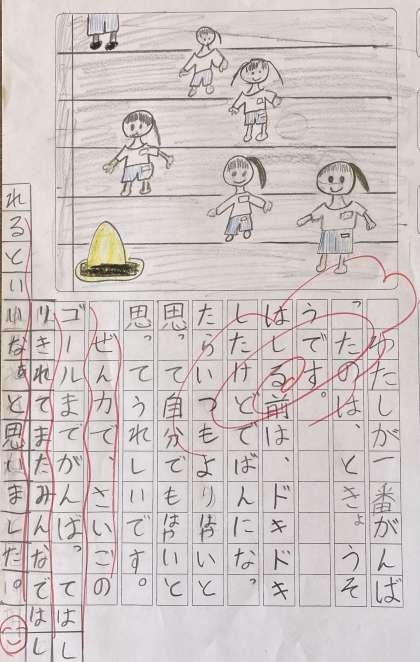 わたしが一番がんば
ったのは、ときょうそ
うです。
はしる前は、ドキドキ
したけどでばんになっ
たらいつもよりはやいと
思って自分でもはやいと
思ってうれしいです。
ぜん力で、さいごの
ゴールまでがんばってはし
りきれてまたみんなではし
れるといいなぁと思いました。